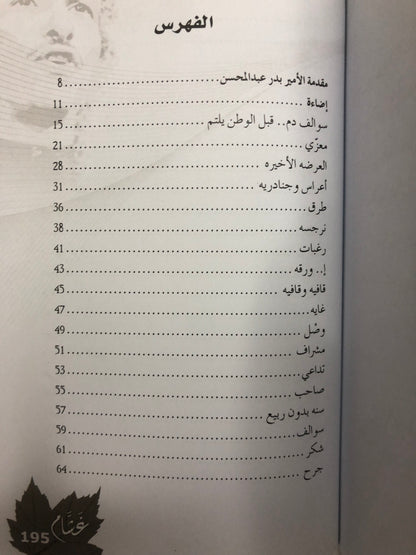 الفهرس
مقدمة الأمير بدر عبدالمحسن........................8
إضاءة........................11
سوالف دم.. قبل الوطن يلتم........................15
معزّي........................21
العرضه الأخيره........................28
أعراس وجنادريه........................31
طرق........................36
نرجسه........................38
رغبات........................41
إ.. ورقه........................43
قافيه وقافيه........................45
غايه........................47
وصْل........................49
مشراف........................51
تداعي........................53
صاحب........................55
سنه بدون ربيع........................57
سوالف........................59
شكر........................61
جرح........................64
غنَّام
195